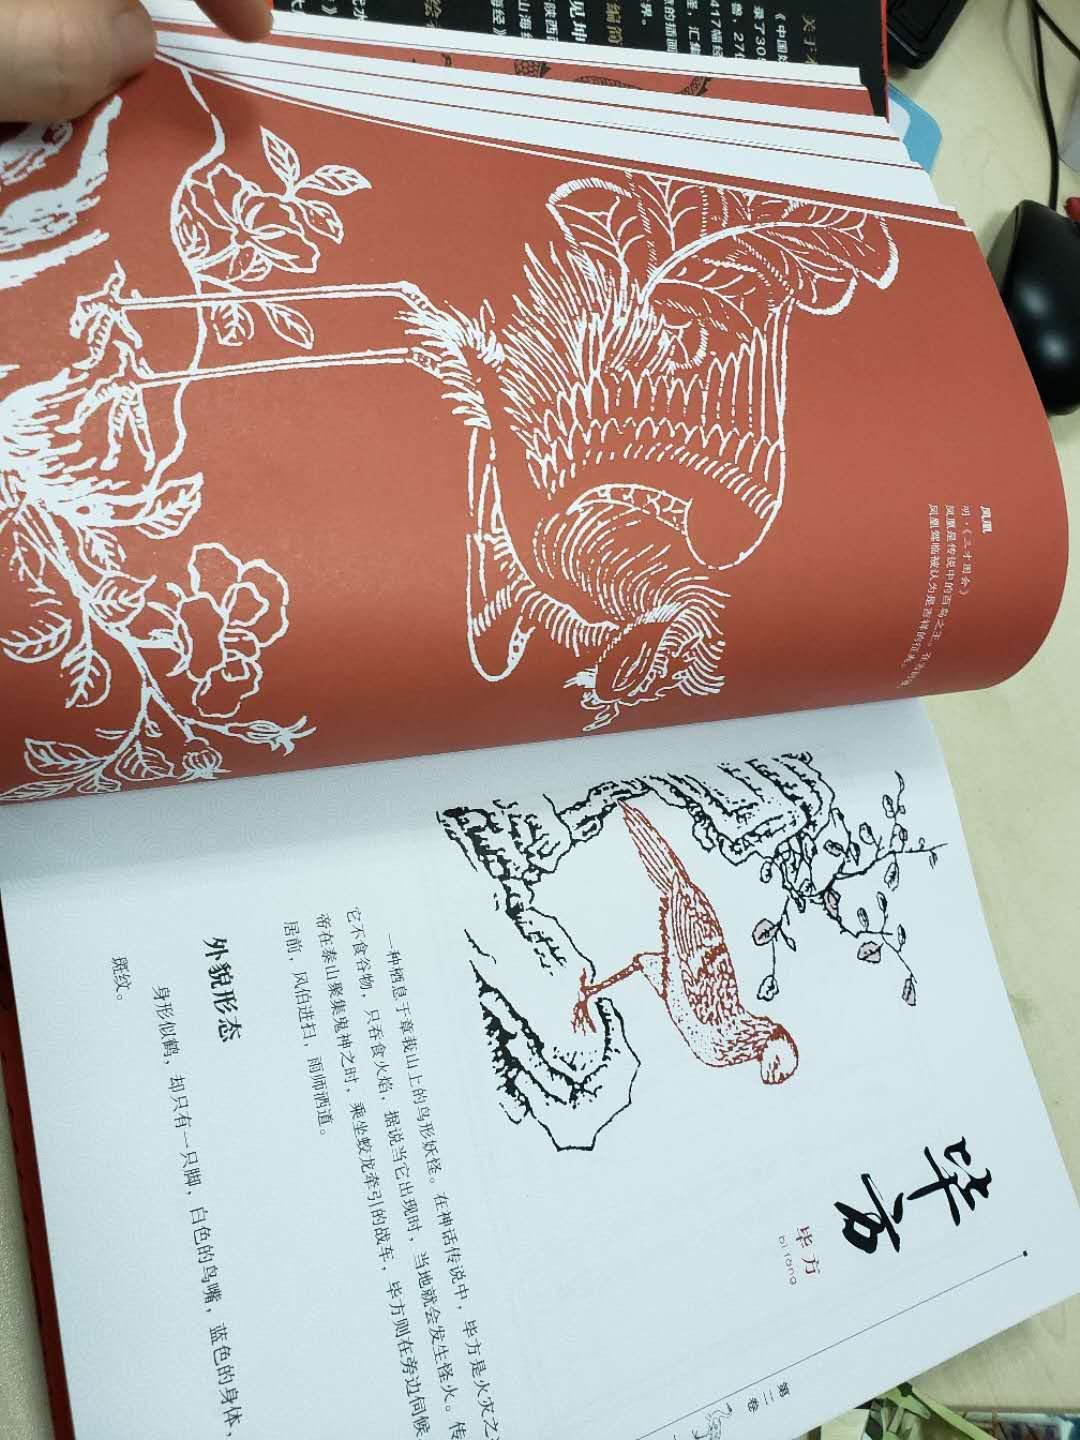 凤凰
明·《三才图会》
凤凰是传说中的百鸟之王。
凤凰
被认为是吉祥的征兆。
毕方
毕方
bì fāng
第二卷
一种栖息于章莪山上的鸟形妖怪。在神话传说中，毕方是火灾之
它不食谷物，只吞食火焰，据说当它出现时，当地就会发生怪火。传
帝在泰山聚集鬼神之时，乘坐蛟龙牵引的战车，毕方则在旁边伺候
居前，风伯进扫，雨师洒道。
外貌形态
身形似鹤，却只有一只脚，白色的鸟嘴，蓝色的身体，
斑纹。
关于
《中国
录了30
兽，276
417幅经
汇集
的插画
界。
编简
见坤
陕西
山海经
海经》
绘